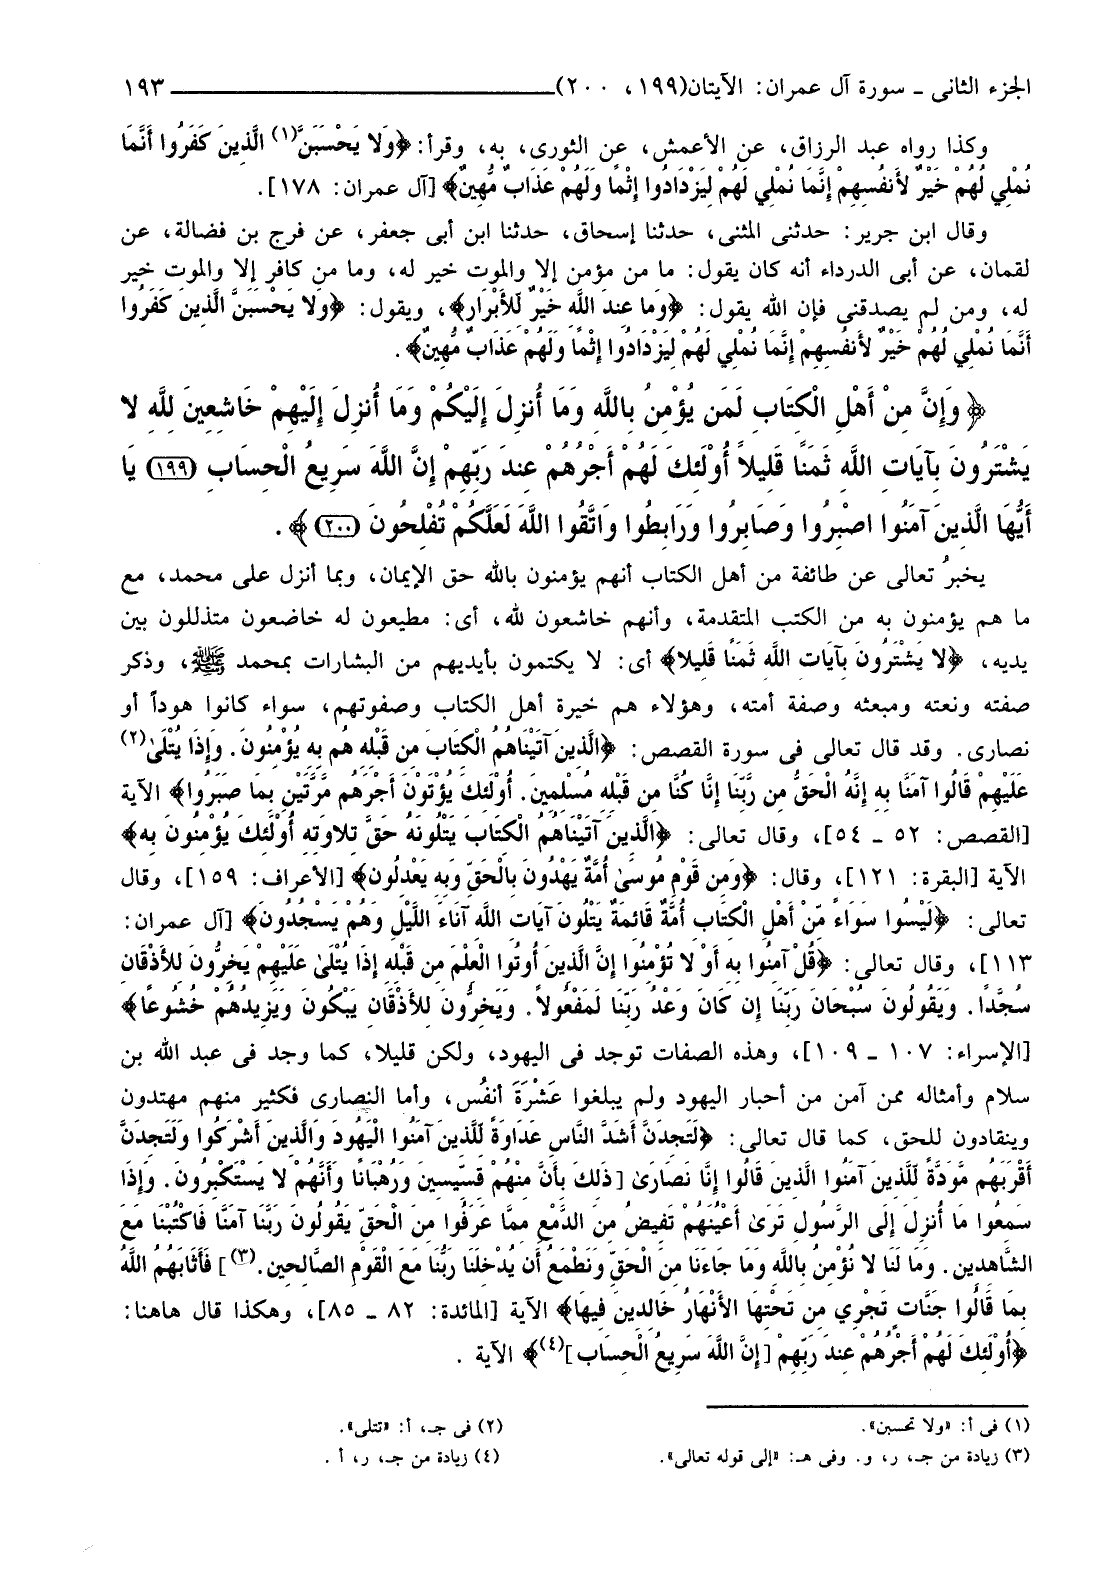 الجزء الثانى ـ سورة آل عمران: الآيتان(١٩٩، ٢٠٠) ١٩٣
وكذا رواه عبد الرزاق، عن الأعمش، عن الثورى، به، وقرأ: ﴿وَلا يَحْسَبَنَّ(١) الَّذِينَ كَفَرُوا أَنَّمَا
نُمْلِي لَهُمْ خَيْرٌ لأَنفُسِهِمْ إِنَّمَا نُمْلِي لَهُمْ لِيَزْدَادُوا إِثْمًا وَلَهُمْ عَذَابٌ مُّهِينٌ﴾ [آل عمران: ١٧٨].
وقال ابن جرير: حدثنى المثنى، حدثنا إسحاق، حدثنا ابن أبى جعفر، عن فرج بن فضالة، عن
لقمان، عن أبى الدرداء أنه كان يقول: ما من مؤمن إلا والموت خير له، وما من كافر إلا والموت خير
له، ومن لم يصدقنى فإن الله يقول: ﴿وَمَا عِندَ اللَّهِ خَيْرٌ لِّلأَبْرَارِ﴾، ويقول: ﴿وَلا يَحْسَبَنَّ الَّذِينَ كَفَرُوا
أَنَّمَا نُمْلِي لَهُمْ خَيْرٌ لأَنفُسِهِمْ إِنَّمَا نُمْلِي لَهُمْ لِيَزْدَادُوا إِثْمًا وَلَهُمْ عَذَابٌ مُّهِينٌ﴾.
﴿وَإِنَّ مِنْ أَهْلِ الْكِتَابِ لَمَن يُؤْمِنُ بِاللَّهِ وَمَا أُنزِلَ إِلَيْكُمْ وَمَا أُنزِلَ إِلَيْهِمْ خَاشِعِينَ لِلَّهِ لا
يَشْتَرُونَ بِآيَاتِ اللَّهِ ثَمَنًا قَلِيلاً أُوْلَئِكَ لَهُمْ أَجْرُهُمْ عِندَ رَبِّهِمْ إِنَّ اللَّهَ سَرِيعُ الْحِسَابِ (١٩٩) يَا
أَيُّهَا الَّذِينَ آمَنُوا اصْبِرُوا وَصَابِرُوا وَرَابِطُوا وَاتَّقُوا اللَّهَ لَعَلَّكُمْ تُفْلِحُونَ (٢٠٠)﴾.
يخبرُ تعالى عن طائفة من أهل الكتاب أنهم يؤمنون بالله حق الإيمان، وبما أنزل على محمد، مع
ما هم يؤمنون به من الكتب المتقدمة، وأنهم خاشعون لله، أى: مطيعون له خاضعون متذللون بين
يديه، ﴿لا يَشْتَرُونَ بِآيَاتِ اللَّهِ ثَمَنًا قَلِيلا﴾ أى: لا يكتمون بأيديهم من البشارات بمحمد ﷺ، وذكر
صفته ونعته ومبعثه وصفة أمته، وهؤلاء هم خيرة أهل الكتاب وصفوتهم، سواء كانوا هوداً أو
نصارى. وقد قال تعالى فى سورة القصص: ﴿الَّذِينَ آتَيْنَاهُمُ الْكِتَابَ مِن قَبْلِهِ هُم بِهِ يُؤْمِنُونَ. وَإِذَا يُتْلَىٰ(٢)
عَلَيْهِمْ قَالُوا آمَنَّا بِهِ إِنَّهُ الْحَقُّ مِن رَّبِّنَا إِنَّا كُنَّا مِن قَبْلِهِ مُسْلِمِينَ. أُوْلَئِكَ يُؤْتَوْنَ أَجْرَهُم مَّرَّتَيْنِ بِمَا صَبَرُوا﴾ الآية
[القصص: ٥٢ ـ ٥٤]، وقال تعالى: ﴿الَّذِينَ آتَيْنَاهُمُ الْكِتَابَ يَتْلُونَهُ حَقَّ تِلاوَتِهِ أُوْلَئِكَ يُؤْمِنُونَ بِهِ﴾
الآية [البقرة: ١٢١]، وقال: ﴿وَمِن قَوْمِ مُوسَىٰ أُمَّةٌ يَهْدُونَ بِالْحَقِّ وَبِهِ يَعْدِلُونَ﴾ [الأعراف: ١٥٩]، وقال
تعالى: ﴿لَيْسُوا سَوَاءً مِّنْ أَهْلِ الْكِتَابِ أُمَّةٌ قَائِمَةٌ يَتْلُونَ آيَاتِ اللَّهِ آنَاءَ اللَّيْلِ وَهُمْ يَسْجُدُونَ﴾ [آل عمران:
١١٣]، وقال تعالى: ﴿قُلْ آمِنُوا بِهِ أَوْ لا تُؤْمِنُوا إِنَّ الَّذِينَ أُوتُوا الْعِلْمَ مِن قَبْلِهِ إِذَا يُتْلَىٰ عَلَيْهِمْ يَخِرُّونَ لِلأَذْقَانِ
سُجَّدًا. وَيَقُولُونَ سُبْحَانَ رَبِّنَا إِن كَانَ وَعْدُ رَبِّنَا لَمَفْعُولاً. وَيَخِرُّونَ لِلأَذْقَانِ يَبْكُونَ وَيَزِيدُهُمْ خُشُوعًا﴾
[الإسراء: ١٠٧ ـ ١٠٩]، وهذه الصفات توجد فى اليهود، ولكن قليلا، كما وجد فى عبد الله بن
سلام وأمثاله ممن آمن من أحبار اليهود ولم يبلغوا عَشْرَةَ أنفُس، وأما النصارى فكثير منهم مهتدون
وينقادون للحق، كما قال تعالى: ﴿لَتَجِدَنَّ أَشَدَّ النَّاسِ عَدَاوَةً لِّلَّذِينَ آمَنُوا الْيَهُودَ وَالَّذِينَ أَشْرَكُوا وَلَتَجِدَنَّ
أَقْرَبَهُم مَّوَدَّةً لِّلَّذِينَ آمَنُوا الَّذِينَ قَالُوا إِنَّا نَصَارَىٰ [ذَلِكَ بِأَنَّ مِنْهُمْ قِسِّيسِينَ وَرُهْبَانًا وَأَنَّهُمْ لا يَسْتَكْبِرُونَ. وَإِذَا
سَمِعُوا مَا أُنزِلَ إِلَى الرَّسُولِ تَرَىٰ أَعْيُنَهُمْ تَفِيضُ مِنَ الدَّمْعِ مِمَّا عَرَفُوا مِنَ الْحَقِّ يَقُولُونَ رَبَّنَا آمَنَّا فَاكْتُبْنَا مَعَ
الشَّاهِدِينَ. وَمَا لَنَا لا نُؤْمِنُ بِاللَّهِ وَمَا جَاءَنَا مِنَ الْحَقِّ وَنَطْمَعُ أَن يُدْخِلَنَا رَبُّنَا مَعَ الْقَوْمِ الصَّالِحِينَ.(٣)] فَأَثَابَهُمُ اللَّهُ
بِمَا قَالُوا جَنَّاتٍ تَجْرِي مِن تَحْتِهَا الأَنْهَارُ خَالِدِينَ فِيهَا﴾ الآية [المائدة: ٨٢ ـ ٨٥]، وهكذا قال هاهنا:
﴿أُوْلَئِكَ لَهُمْ أَجْرُهُمْ عِندَ رَبِّهِمْ [إِنَّ اللَّهَ سَرِيعُ الْحِسَابِ](٤)﴾ الآية .
(١) فى أ: «ولا تحسبن». (٢) فى جـ، أ: «تتلى».
(٣) زيادة من جـ، ر، و. وفى هـ: «إلى قوله تعالى». (٤) زيادة من جـ، ر، أ .